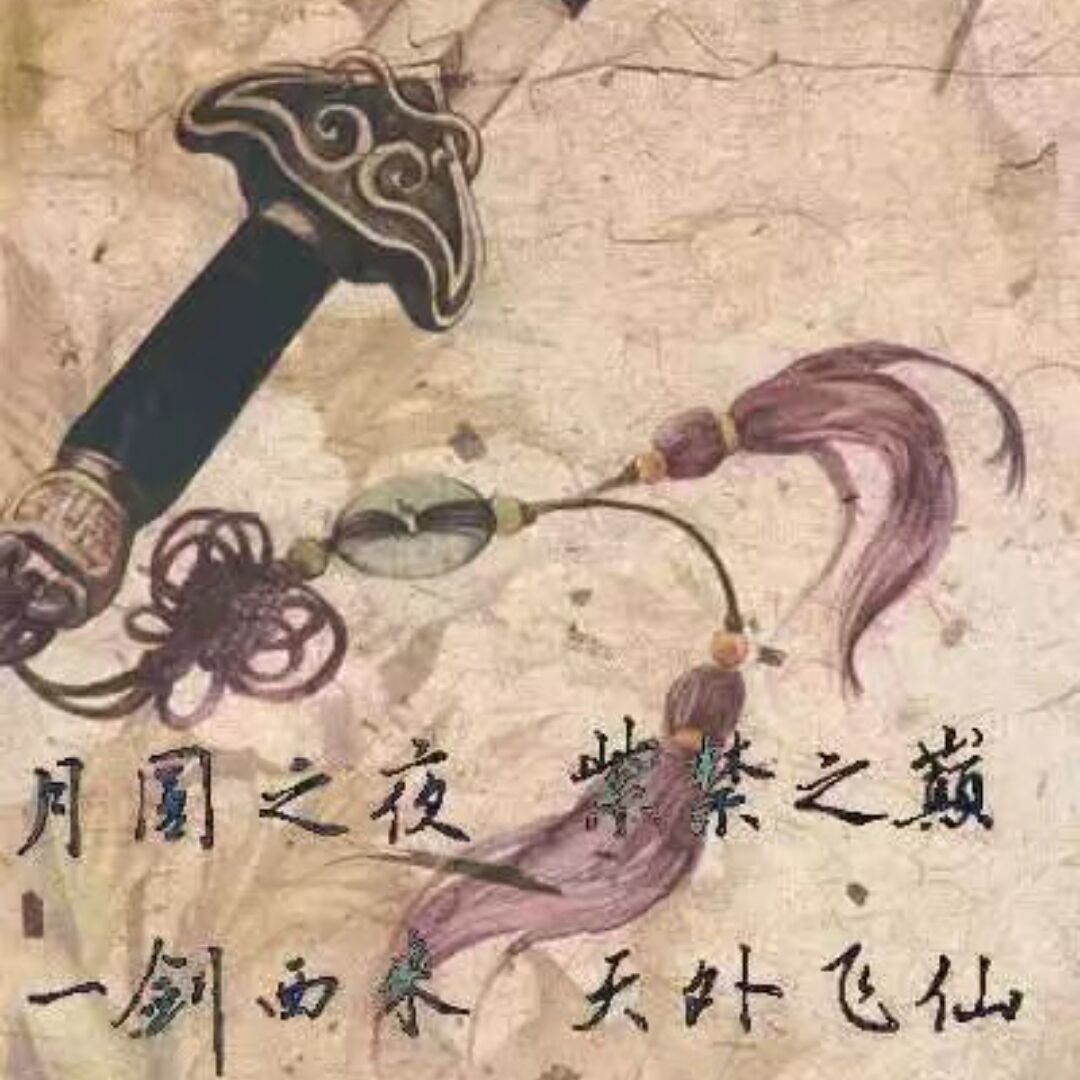 月圆之夜 紫禁之巅
一剑西来 天外飞仙